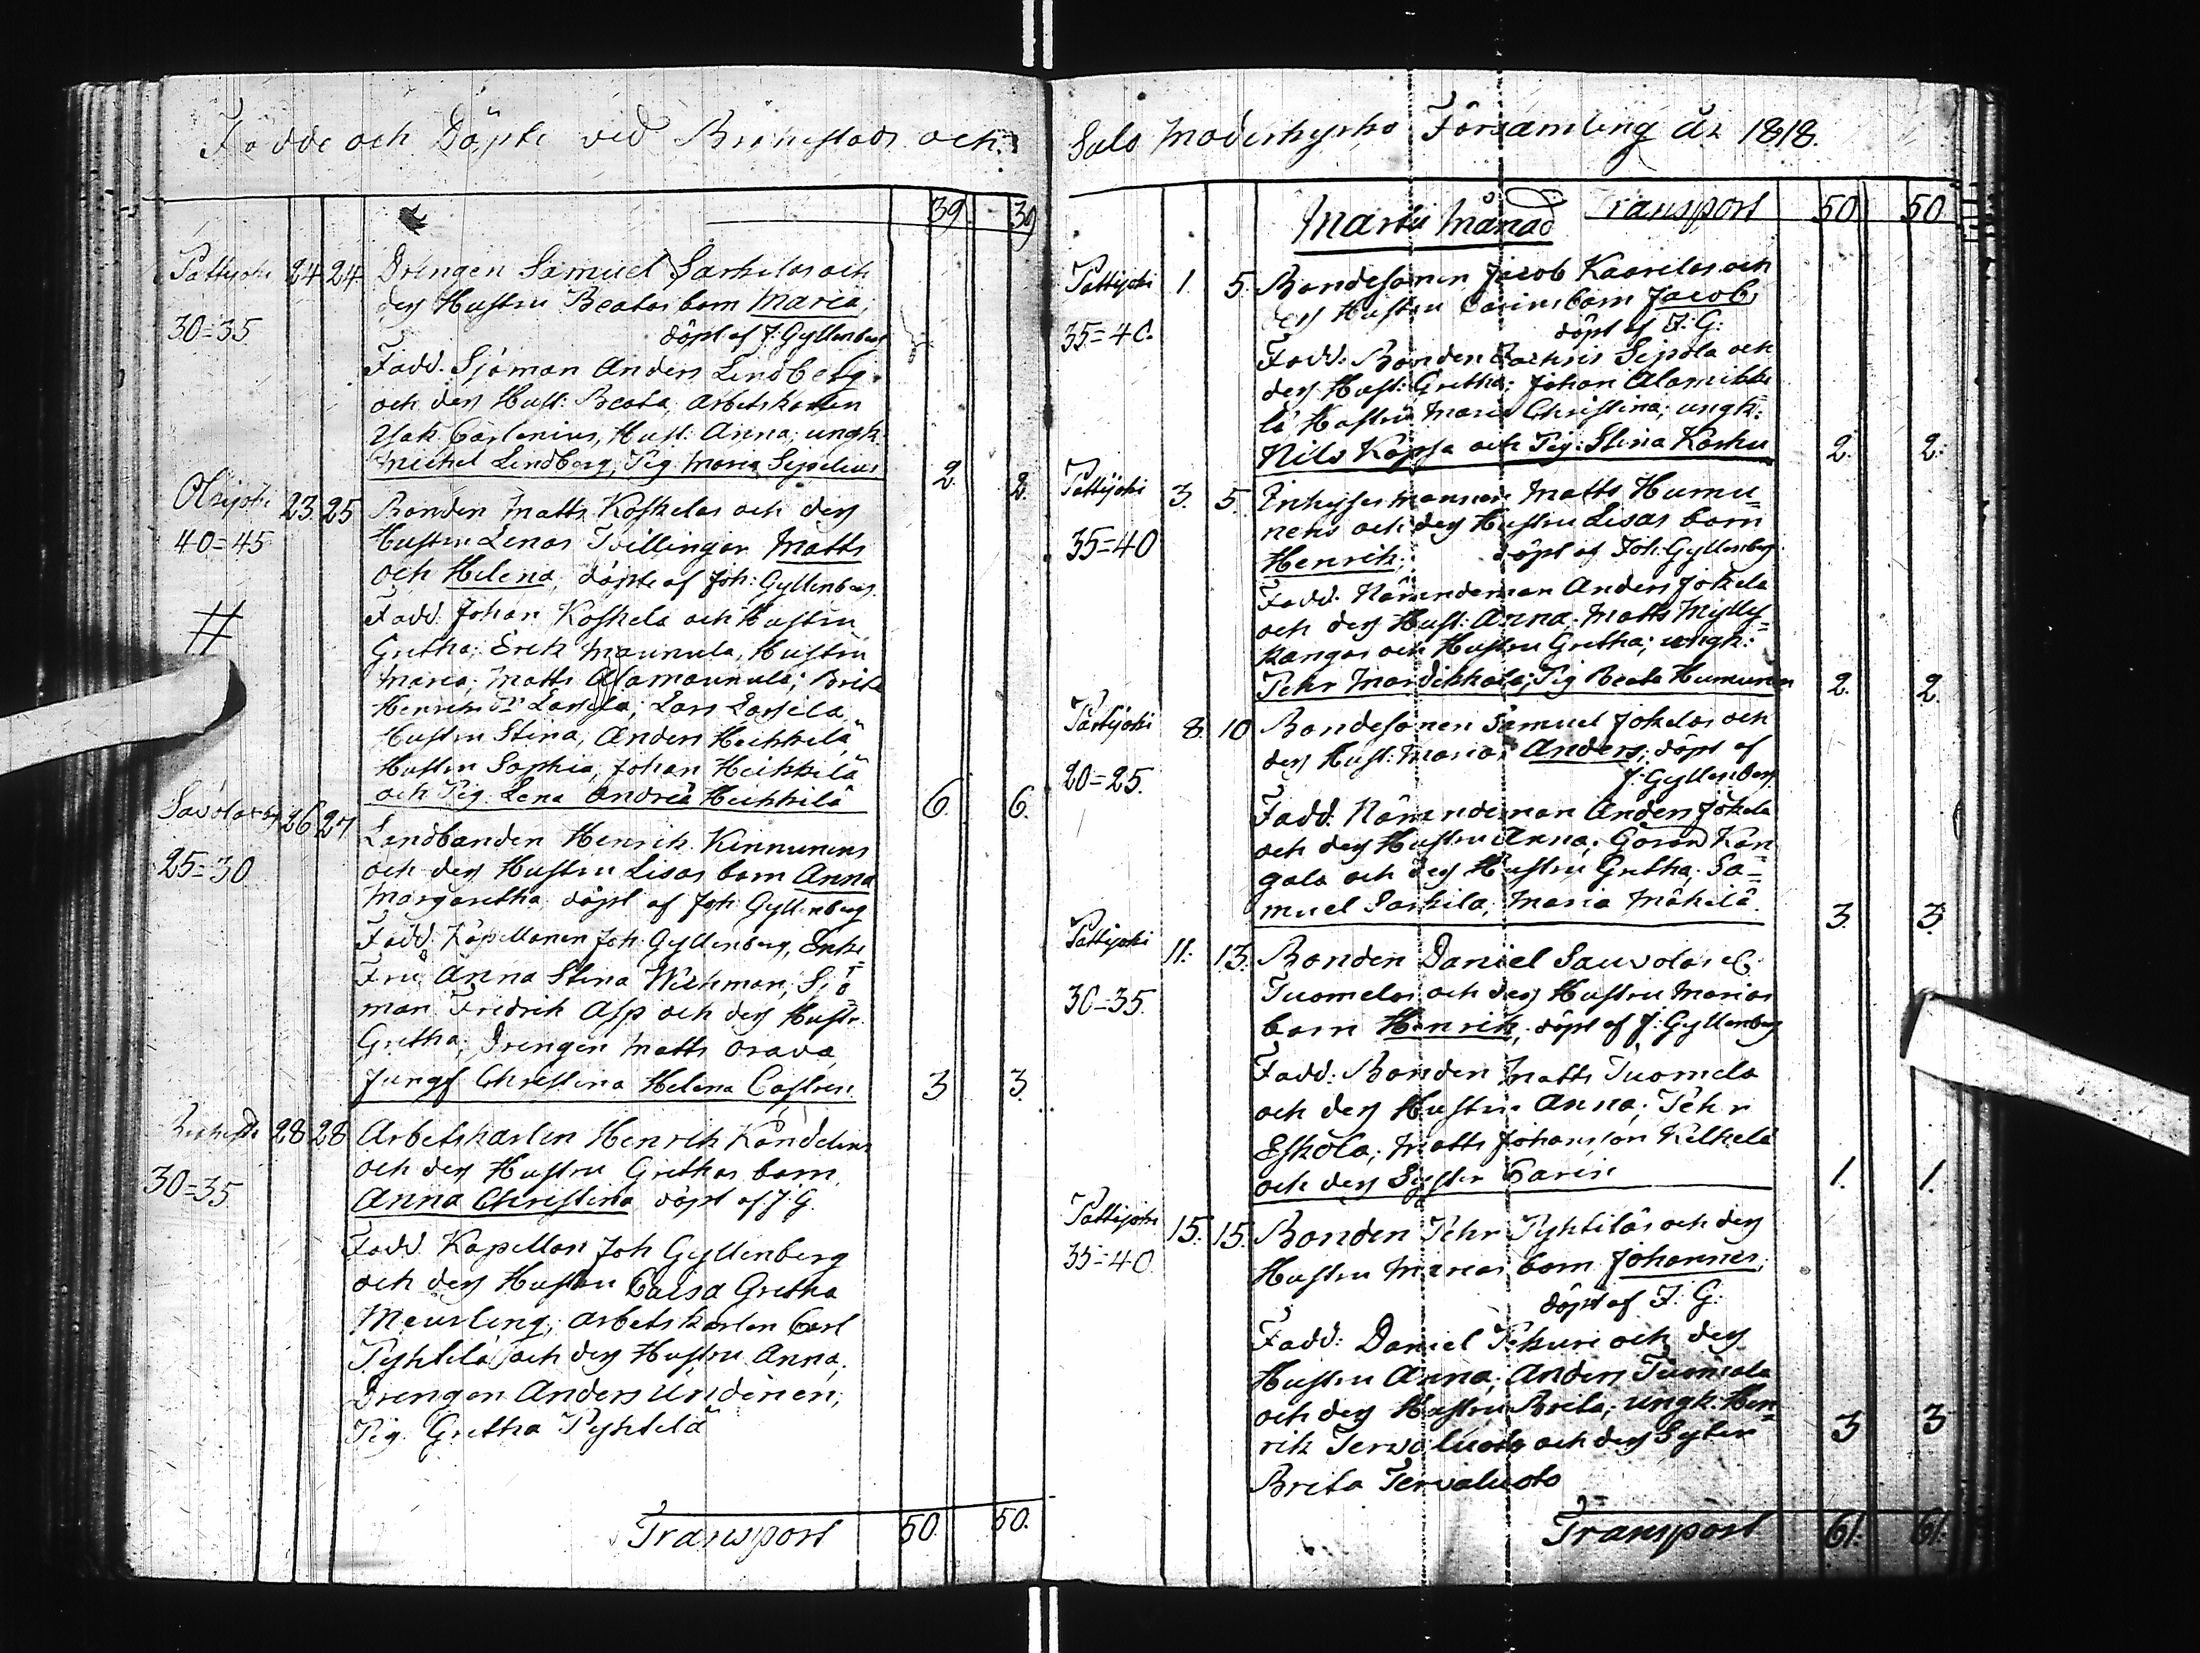 Födde och Döpte vid Brahestads och
39. 39
Pattijoki 24 24 Drengen Samuel Sarkelas och
dess Hustru Beatas barn Maria,
30=35 döpt af J: Gyllenberg
Fadd. Sjöman Anders Lindberg
och dess Hust: Beata, Arbetskarlen
Isak Carlenius, Hust: Anna; ungk:
Michel Lindberg, Pig. Maria Sipelius 2. 2.
Olkijoki 23. 25 Bonden Matts Koskelas och dess
40=45 Hustru Lenas Tvillingar Matts
och Helena, döpte af Joh: Gyllenberg.
# Fadd: Johan Koskela och Hustru
Gretha; Erik Maunula, Hustru
Maria; Matts Alamaunula; Brita
Henriksdr Lassila; Lars Lassila
Hustru Stina, Anders Heikkilä
Hustru Sophia, Johan Heikkilä
och Pig. Lena Heikkilä 6. 6.
Savolax 26 27 Landbonden Henrik Kinnunens
25=30 och dess Hustru Lisas barn Anna
Margaretha, döpt af Joh: Gyllenberg
Fadd. Kapellanen Joh: Gyllenberg, Enke
Fru Anna Stina Wichman, Sjö=
man Fredrik Asp och dess Hustr.
Gretha; Drengen Matts Orava,
Jungf Christina Helena Castren. 3 3.
28 28 Arbetskarlen Henrik
30=35 och dess Hustru Grethas barn
Anna Christina döpt af J. G.
Fadd. Kapellan Joh Gyllenberg
och dess Hustru Caisa Gretha
Meurling, Arbetskarlen Carl
Pyhtilä och dess Hustru Anna,
Drengen Anders Undinen,
Pig. Gretha Pyhtilä
Transport 50. 50.
Salo Moderkyrko Församling År 1818.
Martii Månad Transport 50 50
Pattijoki 1. 5. Bondesonen Jacob Kaarelas och
dess Hustru Carins barn Jacob,
35=40. döpt af J: G:
Fadd: Bonden Zachris Sipola och
dess Hust: Gretha; Johan Alamikki=
lä Hustru Maria Christina; ungk:
Nils Kopsa och Pig: Stina 2. 2.
Pattijoki 3. 5. Inhysesmannen Matts Humu=
nens och dess Hustru Lisas barn
35=40 Henrik, döpt af Joh: Gyllenberg.
Fadd. Nämndeman Anders Jokela
och dess Hust: Anna; Matts Mylly=
kangas och Hustru Gretha; ungk:
Pehr Mardikkala, Pig Beata Humunen 2. 2.
Pattijoki 8. 10 Bondesonen Samuel Jokelas och
dess Hust: Marias Anders, döpt af
20=25. J: Gyllenberg
Fadd. Nämndeman Anders Jokela
och dess Hustru Anna; Göran Kan=
gala och dess Hustru Gretha, Sa=
muel Sarkila, Maria Mäkilä 3. 3.
Pattijoki 11. 13. Bonden Daniel Sauvolas l.
30=35. Tuomelas och dess Hustru Marias
barn Henrik, döpt af J: Gyllenberg
Fadd: Bonden Matts Tuomela
och dess Hustru Anna; Pehr
Eskola; Matts Johansson
och dess Syster Carin 1. 1.
Pattijoki 15. 15. Bonden Pehr Pyhtiläs och dess
35=40. Hustru Marias barn Johannes,
döpt af J: G:
Fadd: Daniel Pekuri och dess
Hustru Anna; Anders Tuomela
och dess Hustru Brita, ungk. Hen=
rik Tervaluoto och dess Syster 3 3
Brita Tervaluoto
Transport 61. 61.